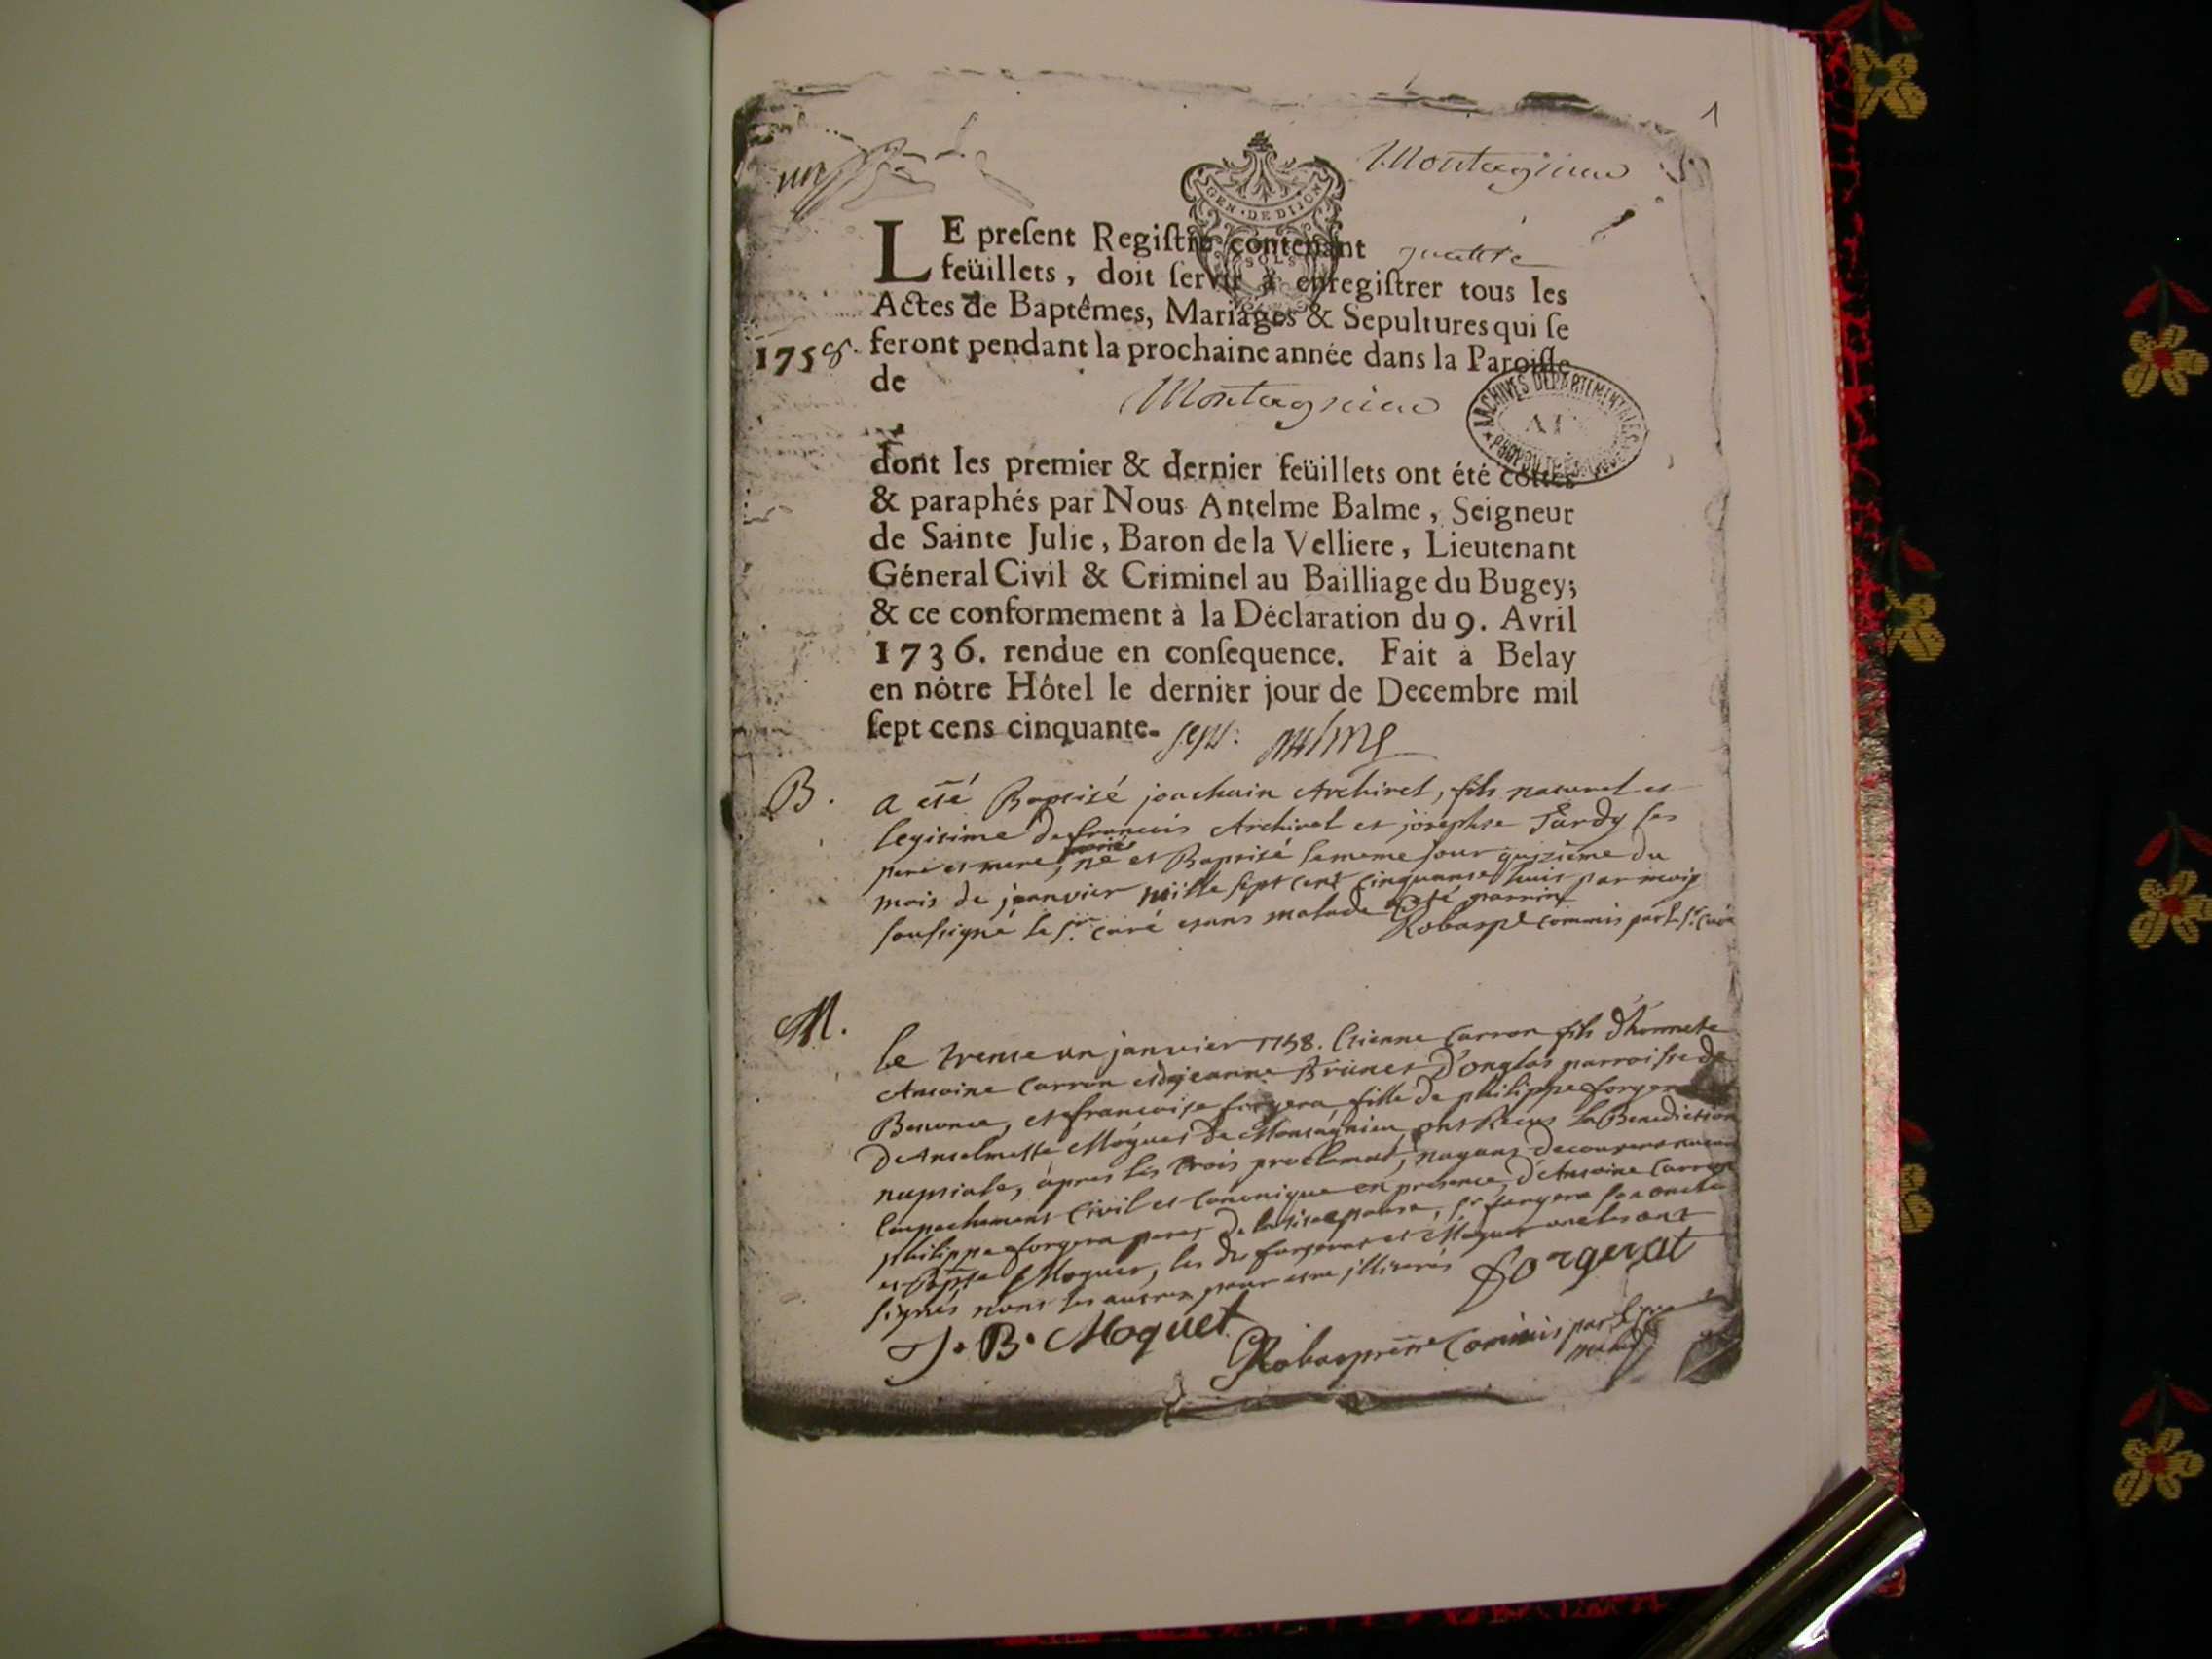 1
Montagnieu
GEN • DE DIJON
SOLS
LE preſent Regiſtre contenant quattre
feüillets, doit ſervir à enregiſtrer tous les
Actes de Baptêmes, Mariages & Sepultures qui ſe
1758. feront pendant la prochaine année dans la Paroiſſe
de Montagnieu
ARCHIVES DÉPARTEMENTALES
AIN
dont les premier & dernier feüillets ont été cottés
& paraphés par Nous Antelme Balme, Seigneur
de Sainte Julie, Baron de la Velliere, Lieutenant
Géneral Civil & Criminel au Bailliage du Bugey;
& ce conformement à la Déclaration du 9. Avril
1736. rendue en conſequence. Fait à Belay
en nôtre Hôtel le dernier jour de Decembre mil
ſept cens cinquante- sept.
B. a été Baptisé joachain Archiret, fils naturel et
legitime de francois Archiret et josephte Tardy ses
pere et mere, né et Baptisé le meme jour quizieme du
mois de janvier mille sept cent cinquante huit par
soussigné le sr. curé etant malade commis par le sr. curé
M. le trente un janvier 1758. Etienne Carron fils d'honnete
Antoine Carron et de jeanne Brunet D'onglas parroisse de
Benonce, et francoise forgera fille de philippe forgera
D'Anselmette Moguet de Montagnieu, ont Recus la Benediction
nuptiale, apres les trois proclamat, nayant decouvert aucun
Empechement Civil et Canonique en presence d'Antoine Carron
philippe forgera peres sr forgera son oncle
et Bapte Moguet, les ds forgerat et Moguet oncles ont
signés non les autres pour etre illiterés forgerat
J. B. Moguet
commis par